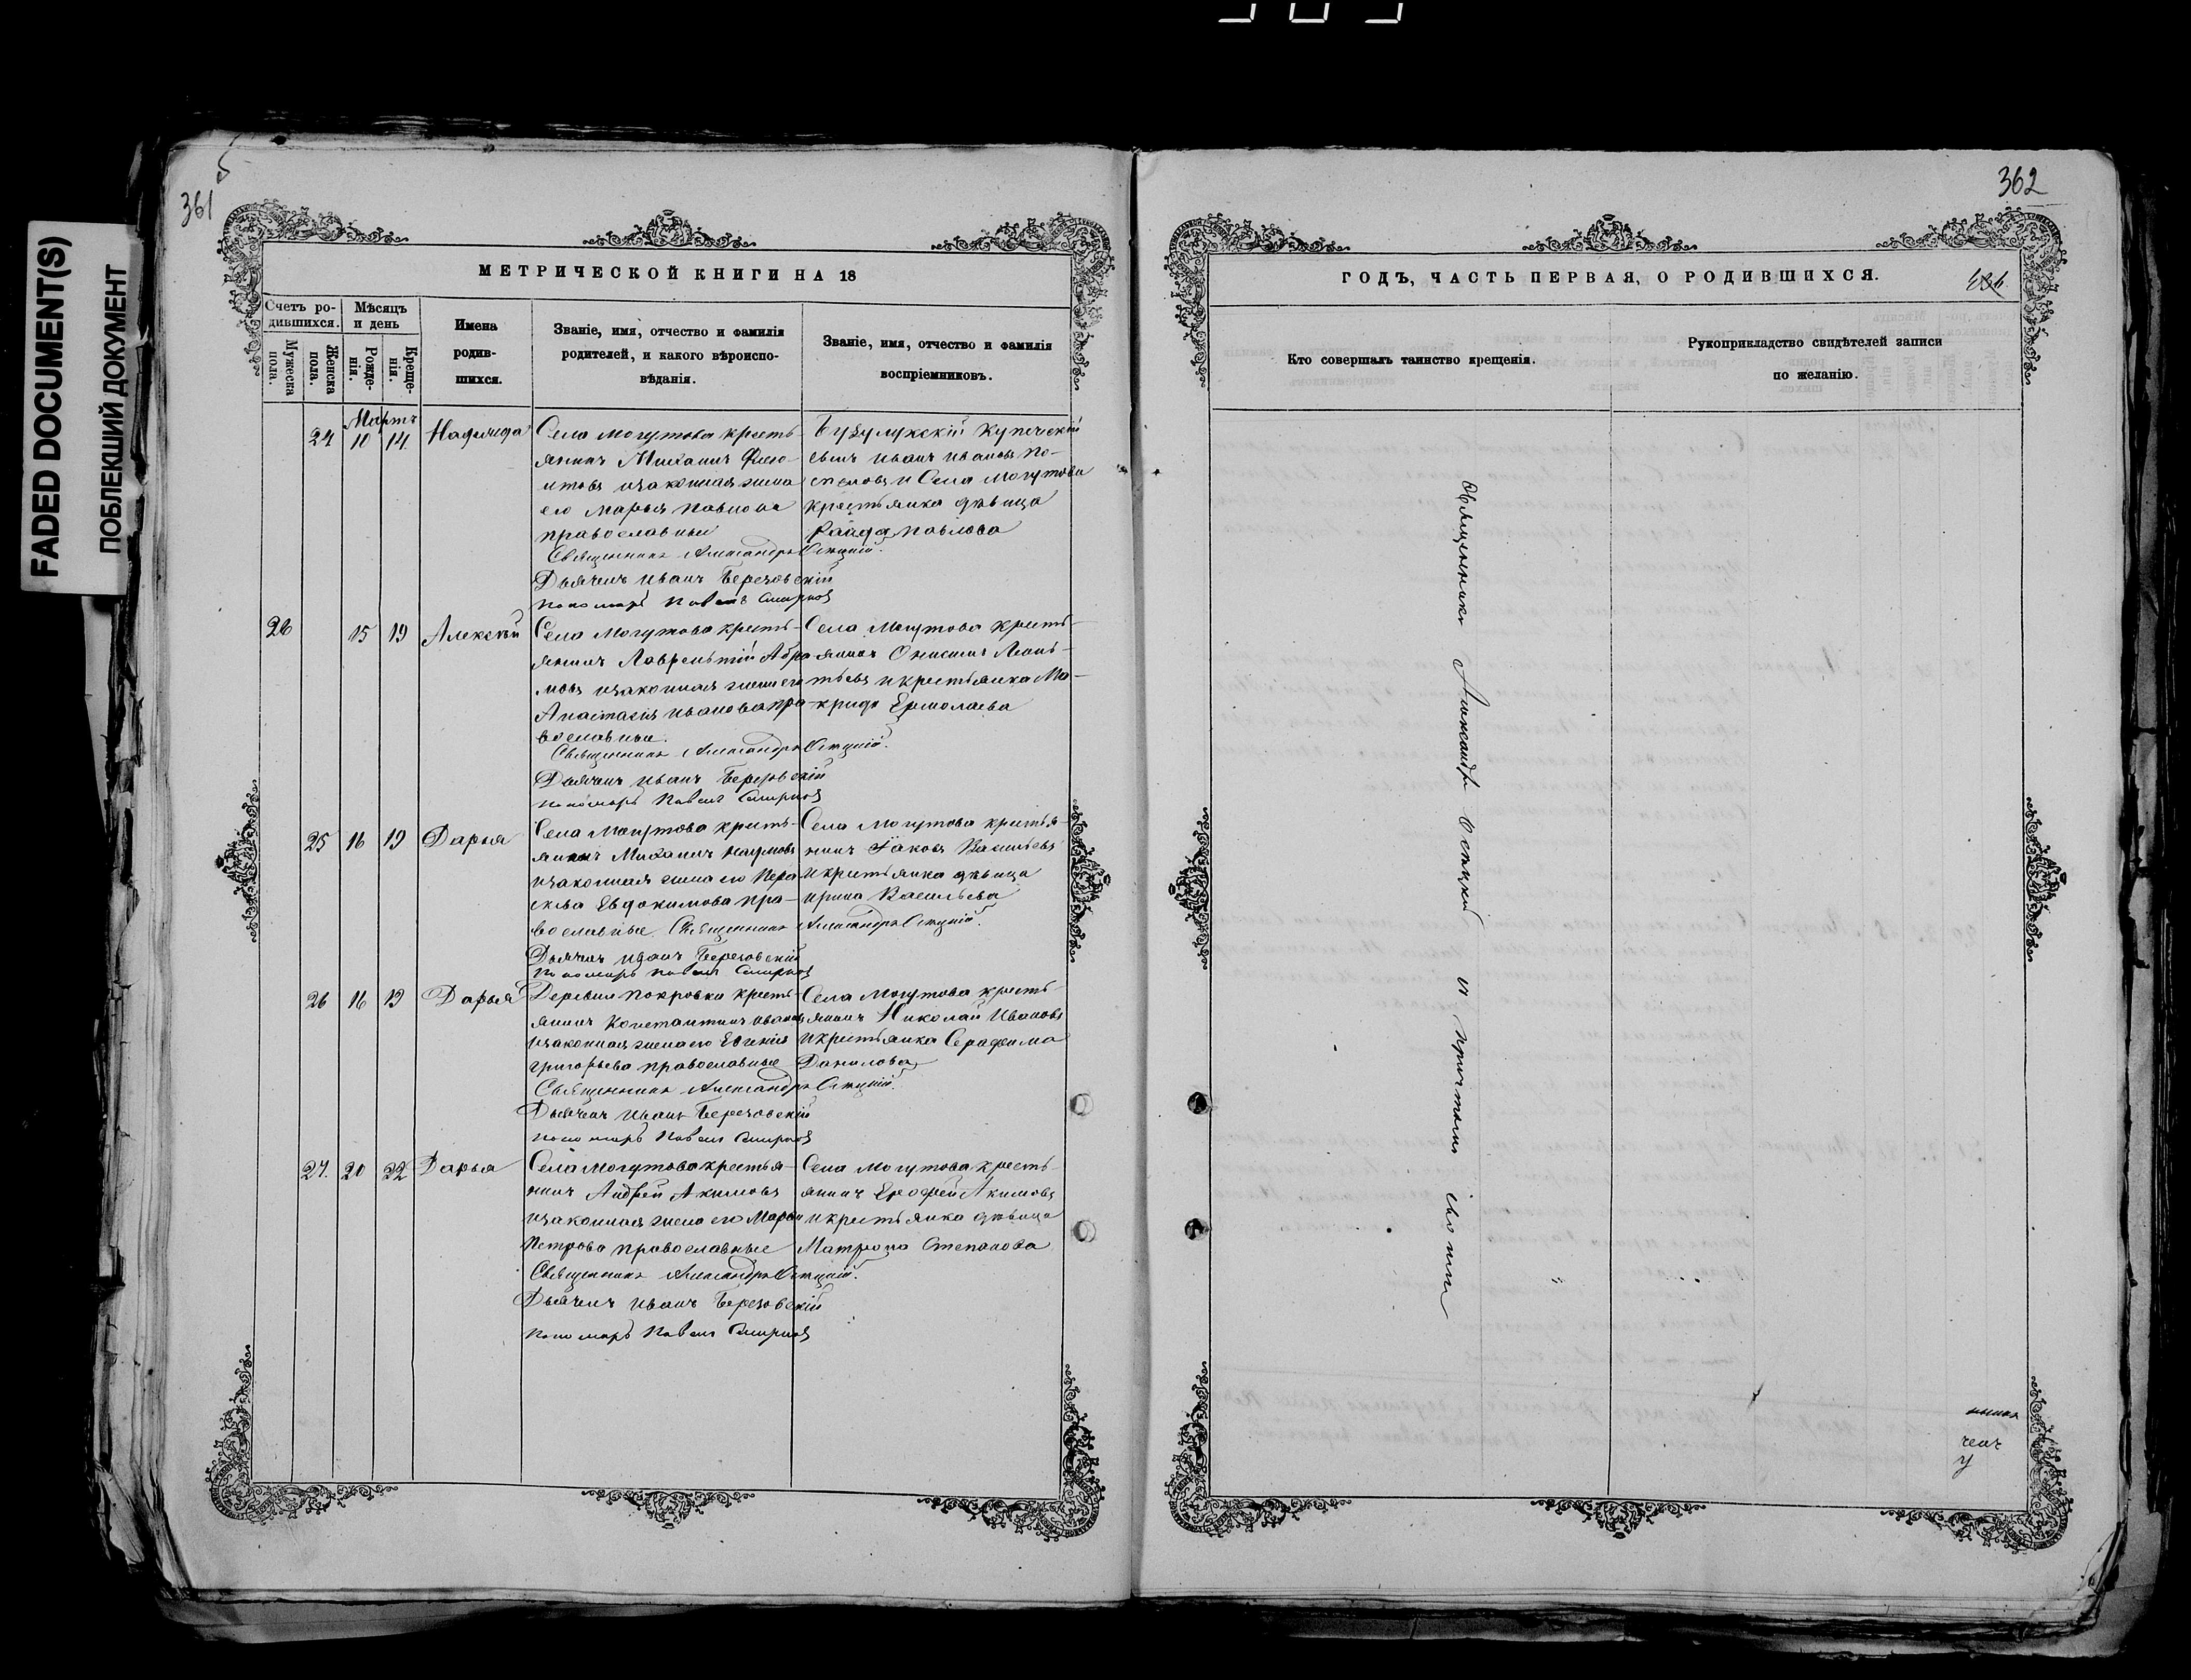 FADED DOCUMENT(S)
ПОБЛЕКШИЙ ДОКУМЕНТ
5
361
МЕТРИЧЕСКОЙ КНИГИ НА 18
Счетъ ро-
дившихся.
Мѣсяцъ
и день
Мужеска
пола.
Женска
пола.
Рожде-
нія.
Креще-
нія.
Имена
родив-
шихся.
Званіе, имя, отчество и фамилія
родителей, и какого вѣроиспо-
вѣданія.
Званіе, имя, отчество и фамилія
воспріемниковъ.
Мартъ
24 10 14 Надежда
Села Могутова кресть-
янинъ Михаилъ
и законная жена
его Марья Павлова
православные
Бузулукскій купеческій
сынъ Иванъ Ивановъ По-
и Села Могутова
крестьянка дѣвица
Павлова
Священникъ Александръ
Дьячекъ Иванъ Березовскій
пономарь Павелъ Смирновъ
26 15 19 Алексѣй
Села Могутова кресть-
янинъ Лаврентій Абра-
мовъ и законная жена его
Анастасія Иванова пра-
вославные.
Села Могутова кресть-
янинъ Онисимъ Леонь-
тьевъ и крестьянка Ма-
крида Ермолаева
Священникъ Александръ
Дьячекъ Иванъ Березовскій
пономарь Павелъ Смирновъ
25 16 19 Дарья
Села Могутова кресть-
янинъ Михаилъ Наумовъ
и законная жена его Пера-
скева Евдокимова пра-
вославные
Села Могутова крестья-
нинъ Іаковъ Васильевъ
и крестьянка дѣвица
Ирина Васильева
Священникъ Александръ
Дьячекъ Иванъ Березовскій
пономарь Павелъ Смирновъ
26 16 19 Дарья
Деревни Покровки кресть-
янинъ Константинъ Ивановъ
и законная жена его Евгенія
Григорьева православные
Села Могутова кресть-
янинъ Николай Ивановъ
и крестьянка Серафима
Данилова
Священникъ Александръ
Дьячекъ Иванъ Березовскій
пономарь Павелъ Смирновъ
27. 20 22 Дарья
Села Могутова крестья-
нинъ Андрей Акимовъ
и законная жена его Марья
Петрова православные
Села Могутова кресть-
янинъ Ерофей Акимовъ
и крестьянка дѣвица
Матрона Степанова
Священникъ Александръ
Дьячекъ Иванъ Березовскій
пономарь Павелъ Смирновъ
362
ГОДЪ, ЧАСТЬ ПЕРВАЯ, О РОДИВШИХСЯ.
Кто совершалъ таинство крещенія.
Рукоприкладство свидѣтелей записи
по желанію.
Священникъ Александръ съ причтомъ своимъ